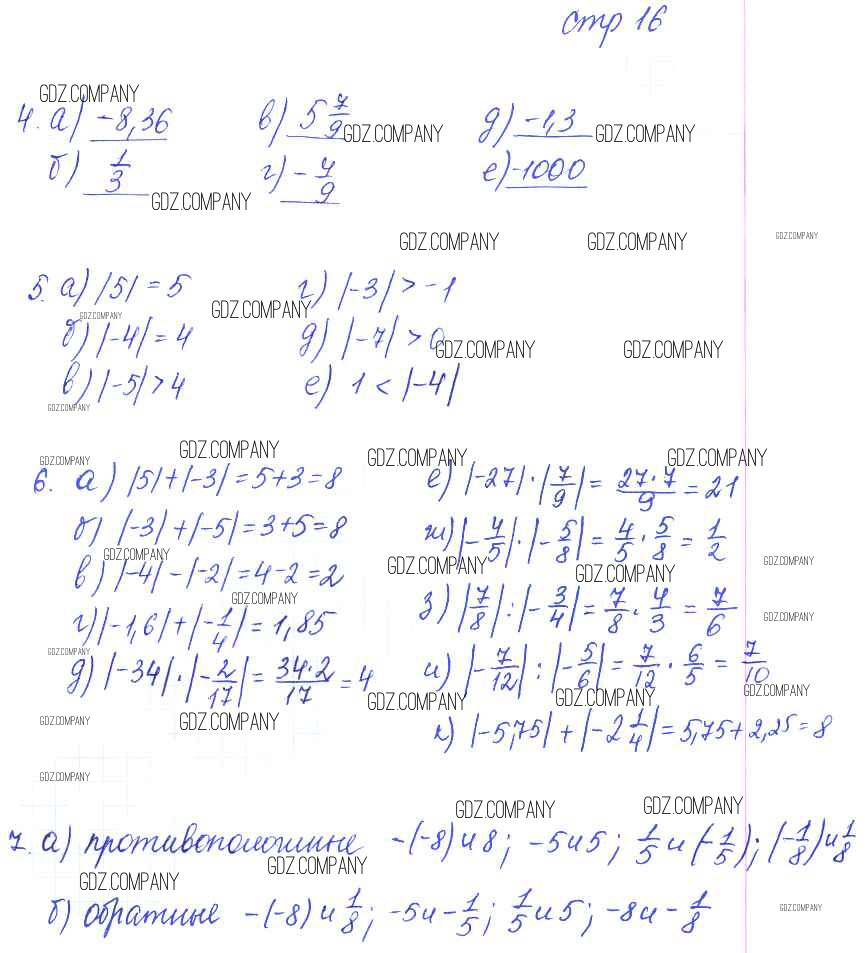 стр 16
GDZ.COMPANY
4. а) -8,36 в) 5 7/9 GDZ.COMPANY д) -1,3 GDZ.COMPANY
б) 1/3 GDZ.COMPANY г) -7/9 е) -1000
GDZ.COMPANY GDZ.COMPANY GDZ.COMPANY
5. а) |5| = 5 г) |-3| > -1
GDZ.COMPANY GDZ.COMPANY
б) |-4| = 4 д) |-7| > 0 GDZ.COMPANY GDZ.COMPANY
в) |-5| > 4 е) 1 < |-4|
GDZ.COMPANY
GDZ.COMPANY GDZ.COMPANY GDZ.COMPANY GDZ.COMPANY
6. а) |5|+|-3| = 5+3 = 8 е) |-27|·|7/9| = 27·7/9 = 21
б) |-3|+|-5| = 3+5 = 8 ж) |-4/5|·|-5/8| = 4/5·5/8 = 1/2
GDZ.COMPANY GDZ.COMPANY GDZ.COMPANY GDZ.COMPANY
в) |-4|-|-2| = 4-2 = 2 з) |7/8|:|-3/4| = 7/8·4/3 = 7/6
GDZ.COMPANY GDZ.COMPANY
г) |-1,6|+|-1/4| = 1,85 и) |-7/12|:|-5/6| = 7/12·6/5 = 7/10
GDZ.COMPANY
д) |-34|·|-2/17| = 34·2/17 = 4 GDZ.COMPANY GDZ.COMPANY GDZ.COMPANY
GDZ.COMPANY GDZ.COMPANY к) |-5,75|+|-2 1/4| = 5,75+2,25 = 8
GDZ.COMPANY
GDZ.COMPANY GDZ.COMPANY
7. а) противоположные -(-8) и 8; -5 и 5; 1/5 и (-1/5); (-1/8) и 1/8
GDZ.COMPANY GDZ.COMPANY
б) обратные -(-8) и 1/8; -5 и -1/5; 1/5 и 5; -8 и -1/8
GDZ.COMPANY